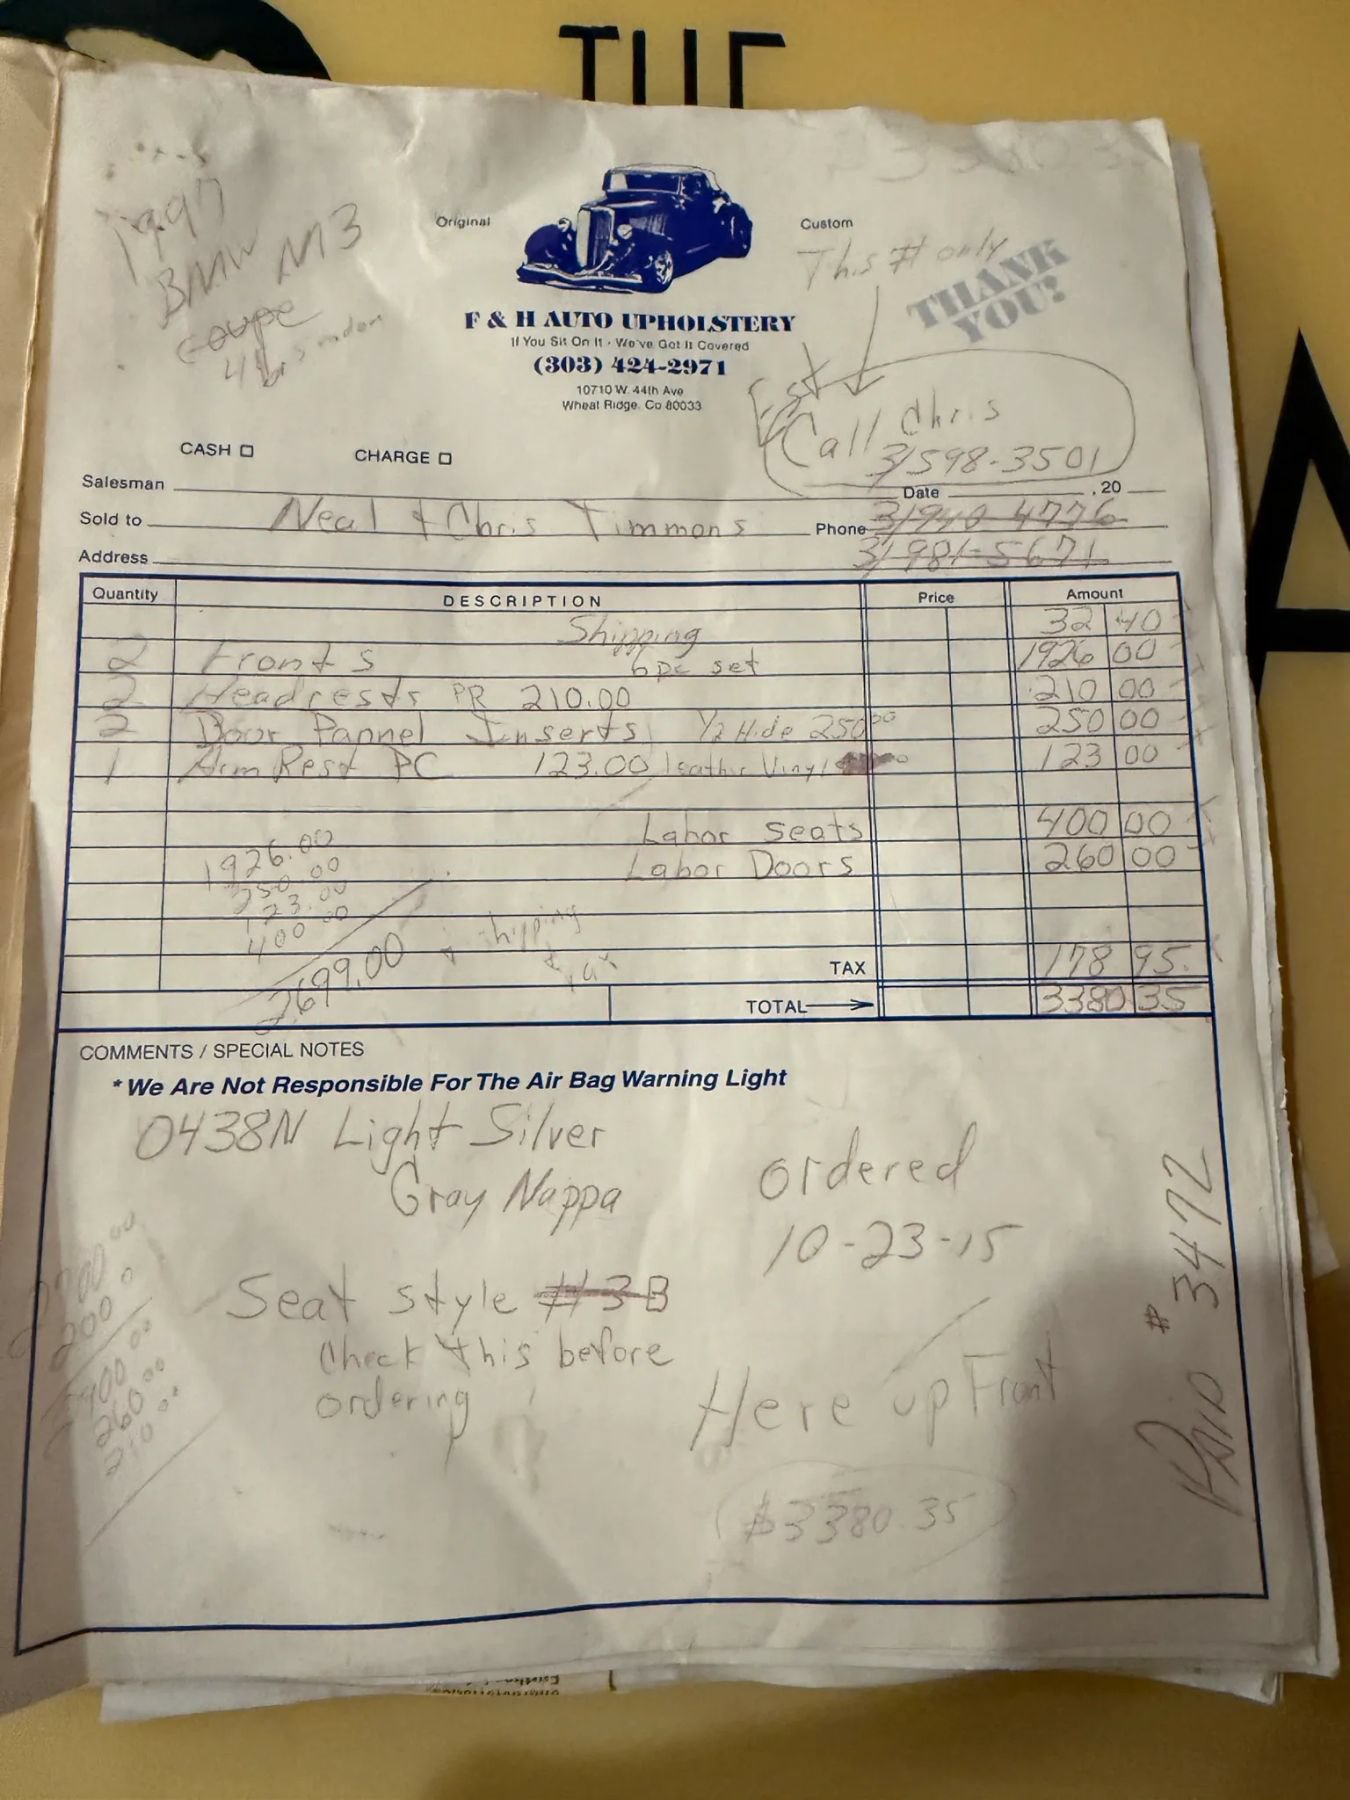 THE
A
1997
BMW M3
coupe
4
Original
Custom
This # only
THANK
YOU!
F & H AUTO UPHOLSTERY
If You Sit On It · We've Got It Covered
(303) 424-2971
10710 W. 44th Ave
Wheat Ridge, Co 80033
Est
Call Chris
3/598-3501
CASH
CHARGE
Salesman
Date , 20
Sold to Neal & Chris Timmons Phone 3/940-4776
Address 3/981-5671
Quantity DESCRIPTION Price Amount
Shipping 32 40
2 Fronts 6pc set 1926 00
2 Headrests PR 210.00 210 00
2 Door Pannel Inserts 1/2 Hide 250.00 250 00
1 Arm Rest PC 123.00 leather Vinyl 123 00
Labor Seats 400 00
Labor Doors 260 00
1926.00
250.00
123.00
400.00
2699.00 + shipping
+ tax
TAX 178 95
TOTAL 3380 35
COMMENTS / SPECIAL NOTES
* We Are Not Responsible For The Air Bag Warning Light
0438N Light Silver
Gray Nappa
ordered
10-23-15
Seat style #3B
Check this before
ordering
Here up Front
$3380.35
PAID # 3472
260.00
210.00